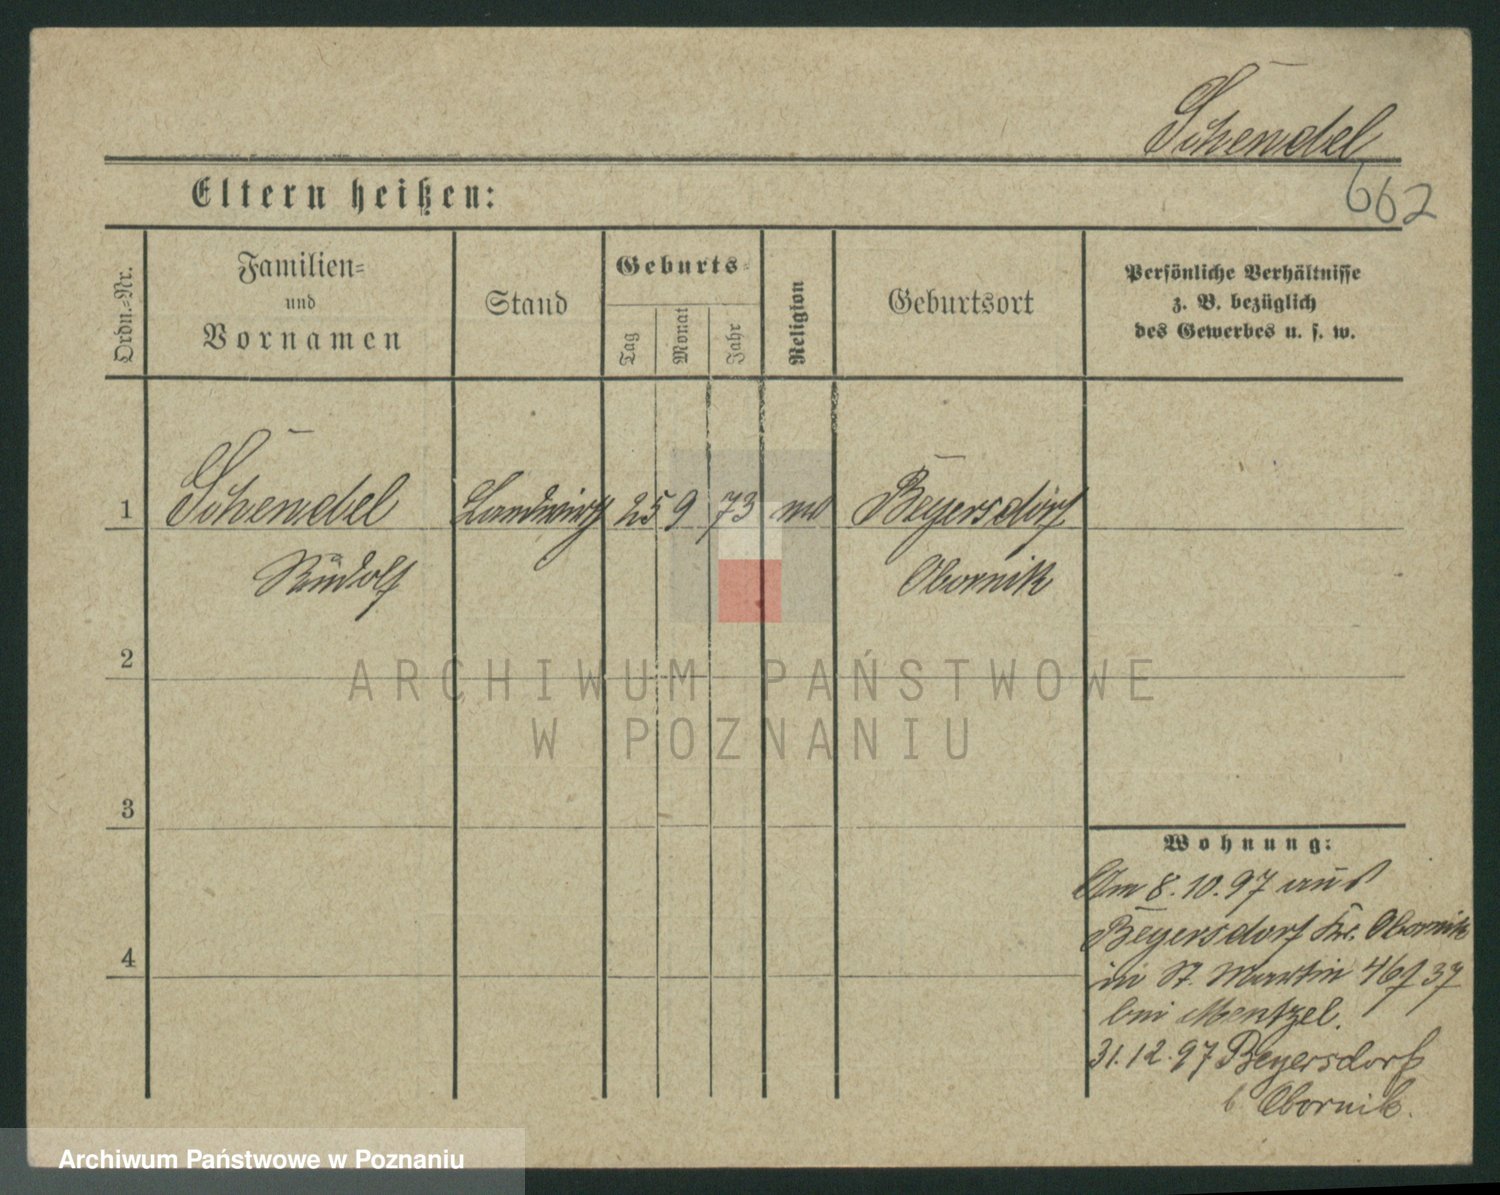 Schendel
662
Eltern heißen:
Ordn.-Nr.
Familien-
und
Vornamen
Stand
Geburts-
Tag
Monat
Jahr
Religion
Geburtsort
Persönliche Verhältnisse
z. B. bezüglich
des Gewerbes u. s. w.
1
Schendel
Landwirth
25
9
73
Beyersdorf
Rudolf
Obornik
2
ARCHIWUM PAŃSTWOWE
W POZNANIU
3
Wohnung:
Am 8.10.97 aus
Beyersdorf Kr. Obornik
in St. Martin 37
4
bei Mentzel.
31.12.97 Beyersdorf
b Obornik.
Archiwum Państwowe w Poznaniu